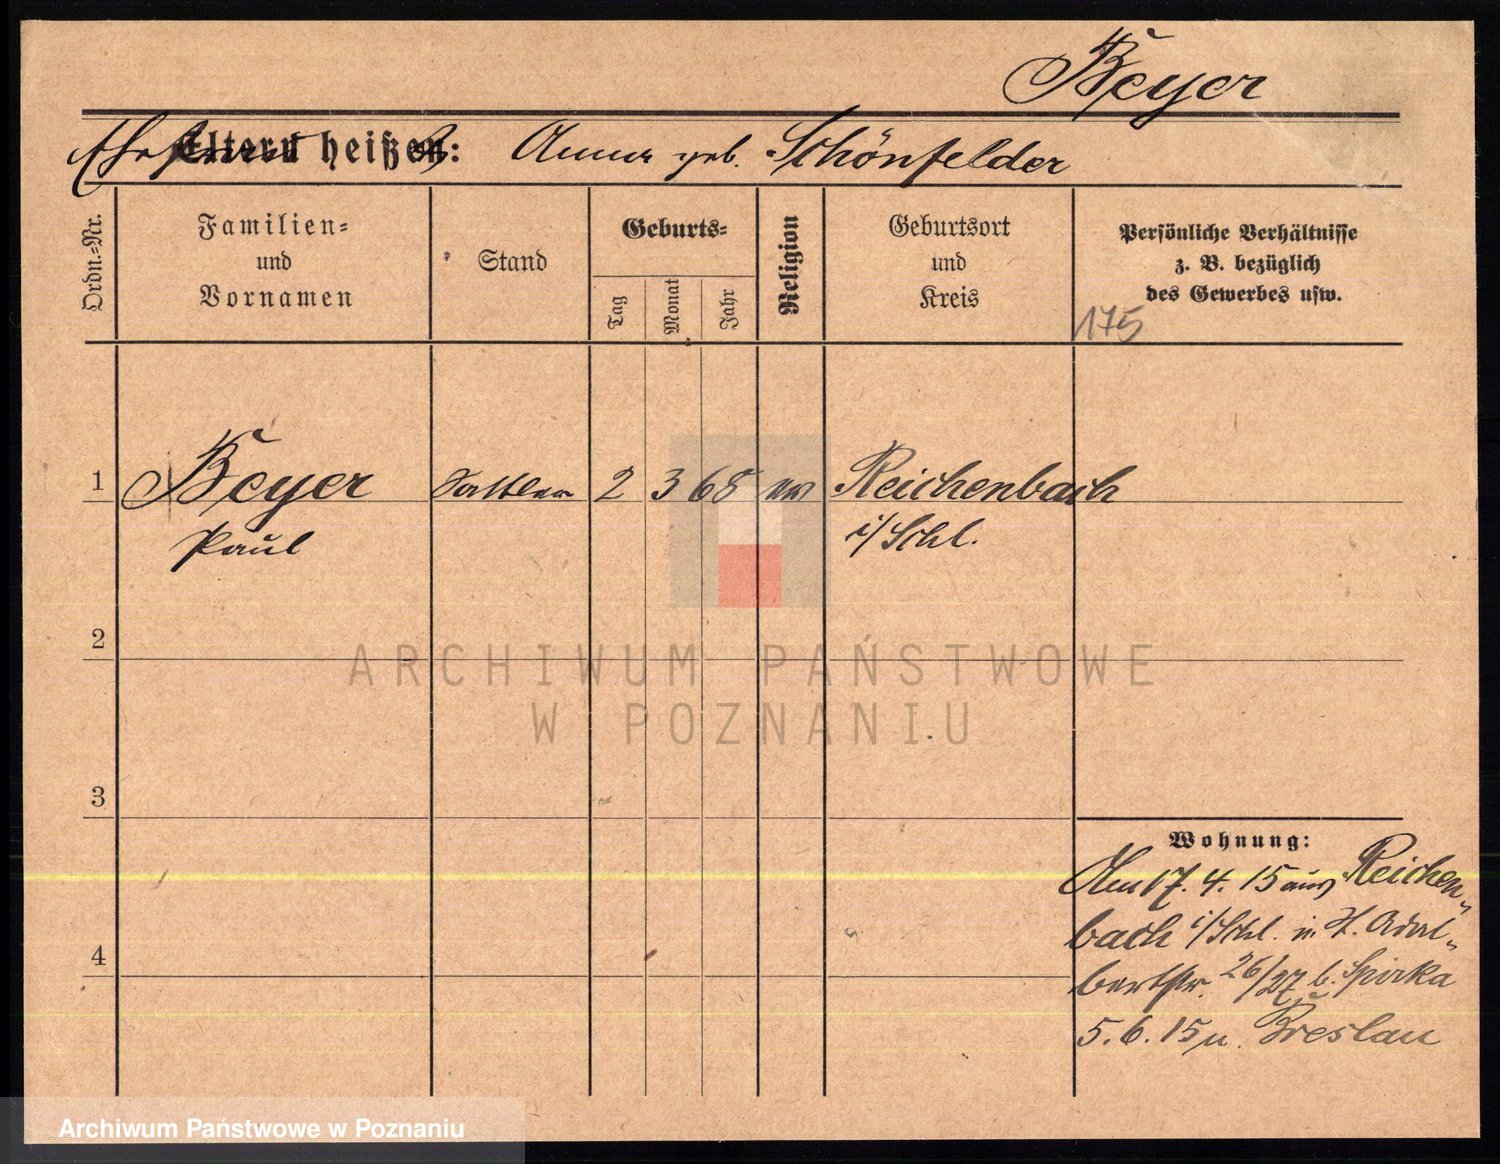 Beyer
Ehefrau heißt: Anna geb. Schönfelder
Ordn.-Nr.
Familien-
und
Vornamen
Stand
Geburts-
Tag
Monat
Jahr
Religion
Geburtsort
und
Kreis
Persönliche Verhältnisse
z. B. bezüglich
des Gewerbes usw.
175
1 Beyer Sattler 2 3 68 ev Reichenbach
Paul i/Schl.
2
ARCHIWUM PAŃSTWOWE
W POZNANIU
3
Wohnung:
Am 17. 4. 15 aus Reichen-
bach i/Schl. in St. Adal-
bertstr. 26/27 b. Spirka
4
5. 6. 15 n. Breslau
Archiwum Państwowe w Poznaniu